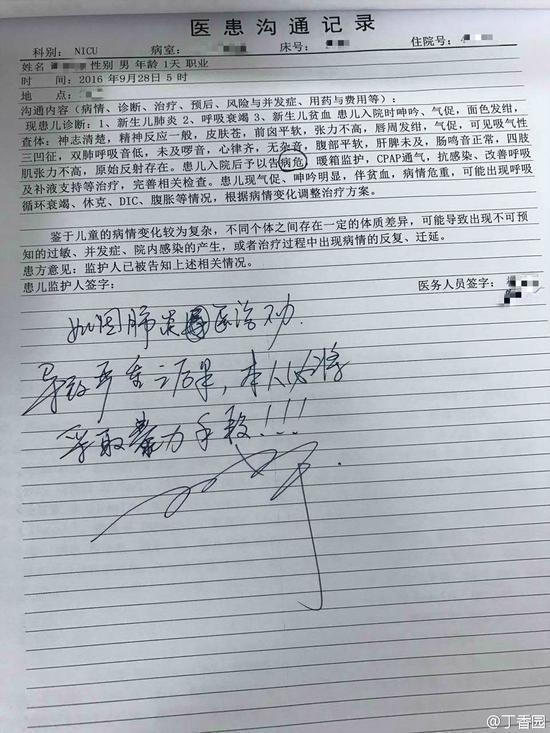 医患沟通记录
科别：NICU 病室： 床号： 住院号：
姓名 性别 男 年龄 1天 职业
时 间：2016年9月28日5时
地 点：
沟通内容（病情、诊断、治疗、预后、风险与并发症、用药与费用等）：
现患儿诊断：1、新生儿肺炎 2、呼吸衰竭 3、新生儿贫血 患儿入院时呻吟、气促，面色发绀，
查体：神志清楚，精神反应一般，皮肤苍，前囟平软，张力不高，唇周发绀，气促，可见吸气性
三凹征，双肺呼吸音低，未及啰音，心律齐，无杂音，腹部平软，肝脾未及，肠鸣音正常，四肢
肌张力不高，原始反射存在。患儿入院后予以告病危，暖箱监护，CPAP通气，抗感染、改善呼吸
及补液支持等治疗，完善相关检查。患儿现气促、呻吟明显，伴贫血，病情危重，可能出现呼吸
循环衰竭、休克、DIC、腹胀等情况，根据病情变化调整治疗方案。
鉴于儿童的病情变化较为复杂，不同个体之间存在一定的体质差异，可能导致出现不可预
知的过敏、并发症、院内感染的产生，或者治疗过程中出现病情的反复、迁延。
患方意见：监护人已被告知上述相关情况。
患儿监护人签字： 医务人员签字：
如因肺炎医治不力
导致严重之后果，本人必将
采取暴力手段！！！
@丁香园